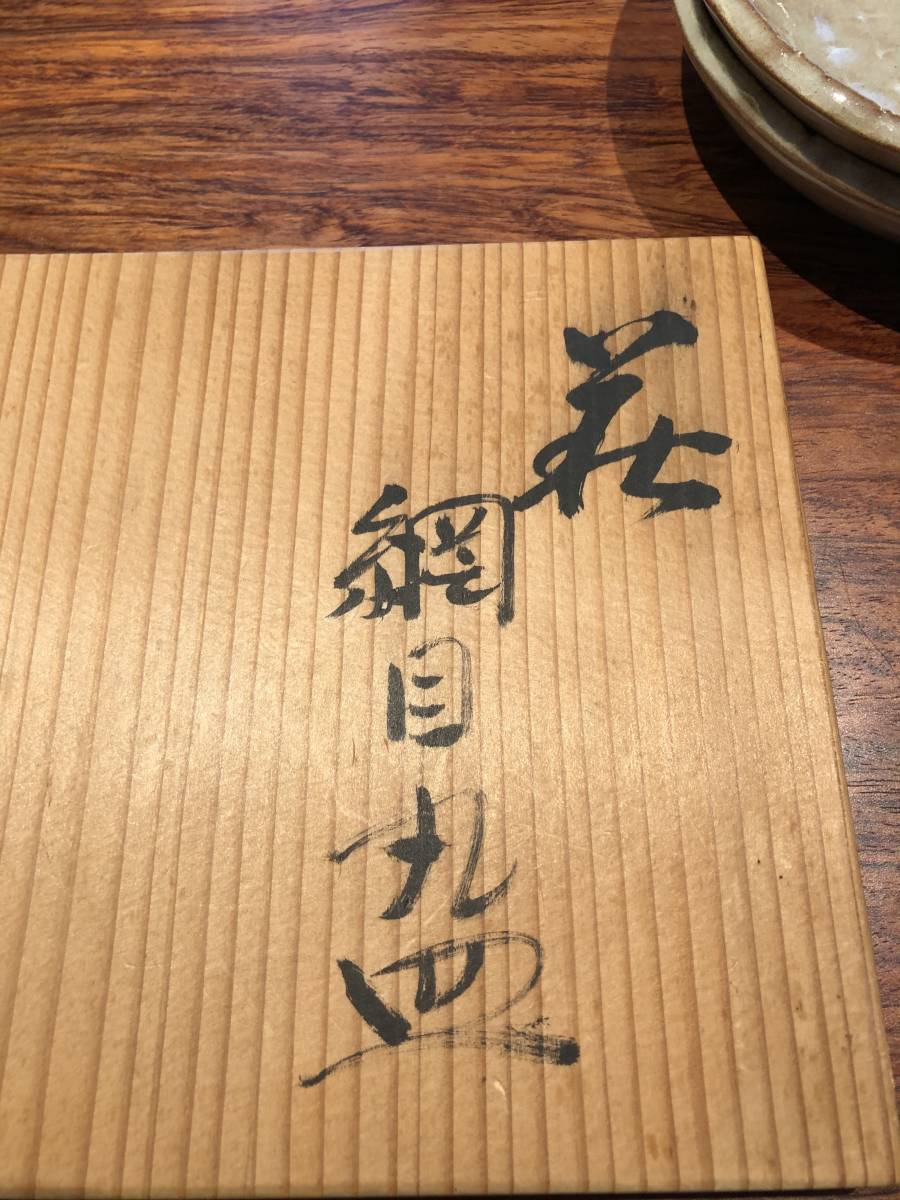 萩
網目丸皿